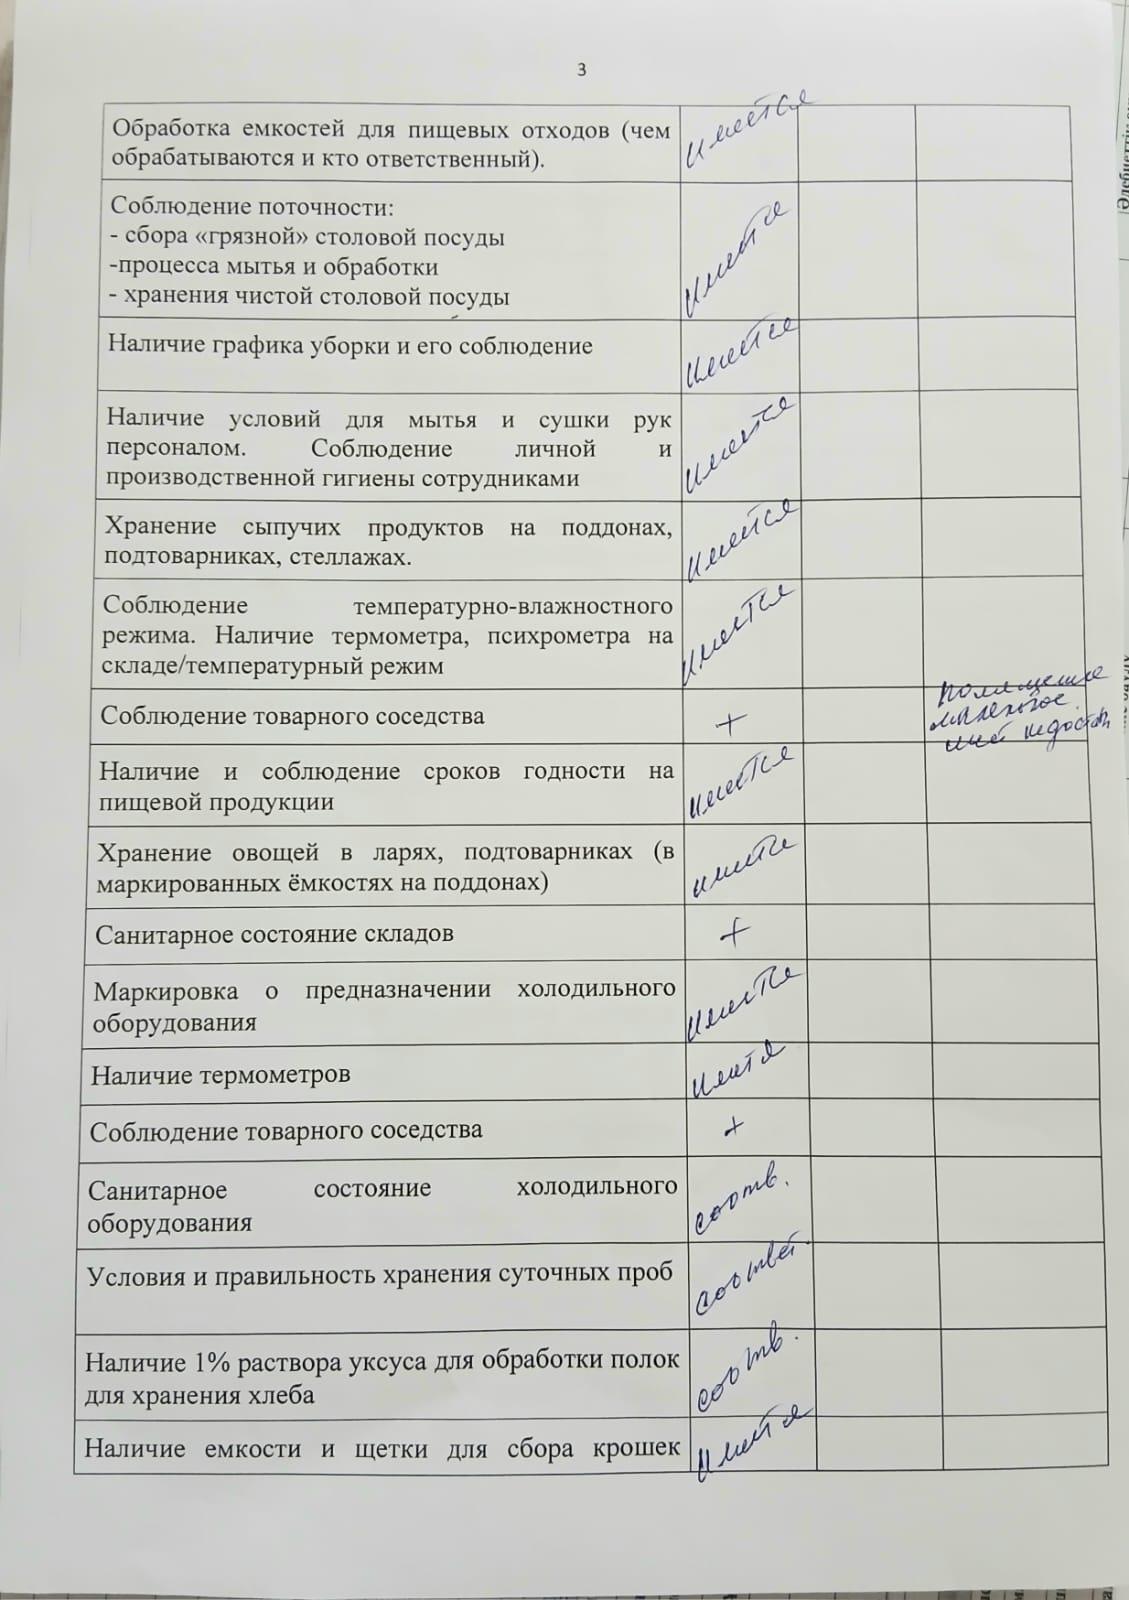 3
Обработка емкостей для пищевых отходов (чем
обрабатываются и кто ответственный).
имеется
Соблюдение поточности:
- сбора «грязной» столовой посуды
-процесса мытья и обработки
- хранения чистой столовой посуды
имеется
Наличие графика уборки и его соблюдение
имеется
Наличие условий для мытья и сушки рук
персоналом. Соблюдение личной и
производственной гигиены сотрудниками
имеется
Хранение сыпучих продуктов на поддонах,
подтоварниках, стеллажах.
имеется
Соблюдение температурно-влажностного
режима. Наличие термометра, психрометра на
складе/температурный режим
имеется
Соблюдение товарного соседства
+
помещение
маленькое
Наличие и соблюдение сроков годности на
пищевой продукции
имеется
Хранение овощей в ларях, подтоварниках (в
маркированных ёмкостях на поддонах)
имеется
Санитарное состояние складов
+
Маркировка о предназначении холодильного
оборудования
имеется
Наличие термометров
имеется
Соблюдение товарного соседства
+
Санитарное состояние холодильного
оборудования
соотв.
Условия и правильность хранения суточных проб
соответ.
Наличие 1% раствора уксуса для обработки полок
для хранения хлеба
соотв.
Наличие емкости и щетки для сбора крошек
имеется